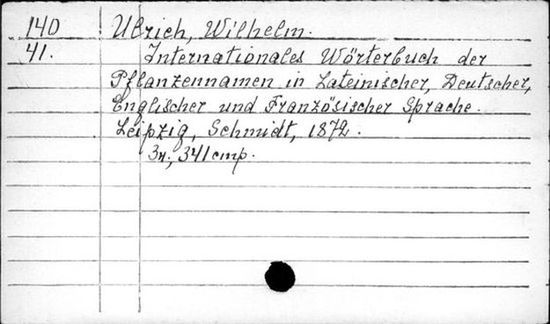 140 Ulrich, Wilhelm.
41. Internationales Wörterbuch der
Pflanzennamen in Lateinischer, Deutscher,
Englischer und Französischer Sprache.
Leipzig, Schmidt, 1872.
Зн., 341 стр.